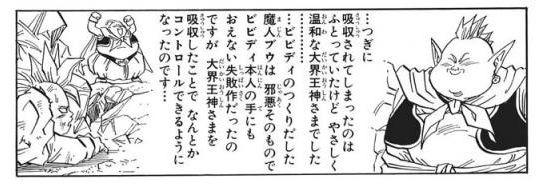 …つぎに
吸収されてしまったのは
ふとっていたけど やさしく
温和な大界王神さまでした
…………
…ビビディのつくりだした
魔人ブウは 邪悪そのもので
ビビディ本人の手にも
おえない失敗作だったの
ですが 大界王神さまを
吸収したことで なんとか
コントロールできるように
なったのです…